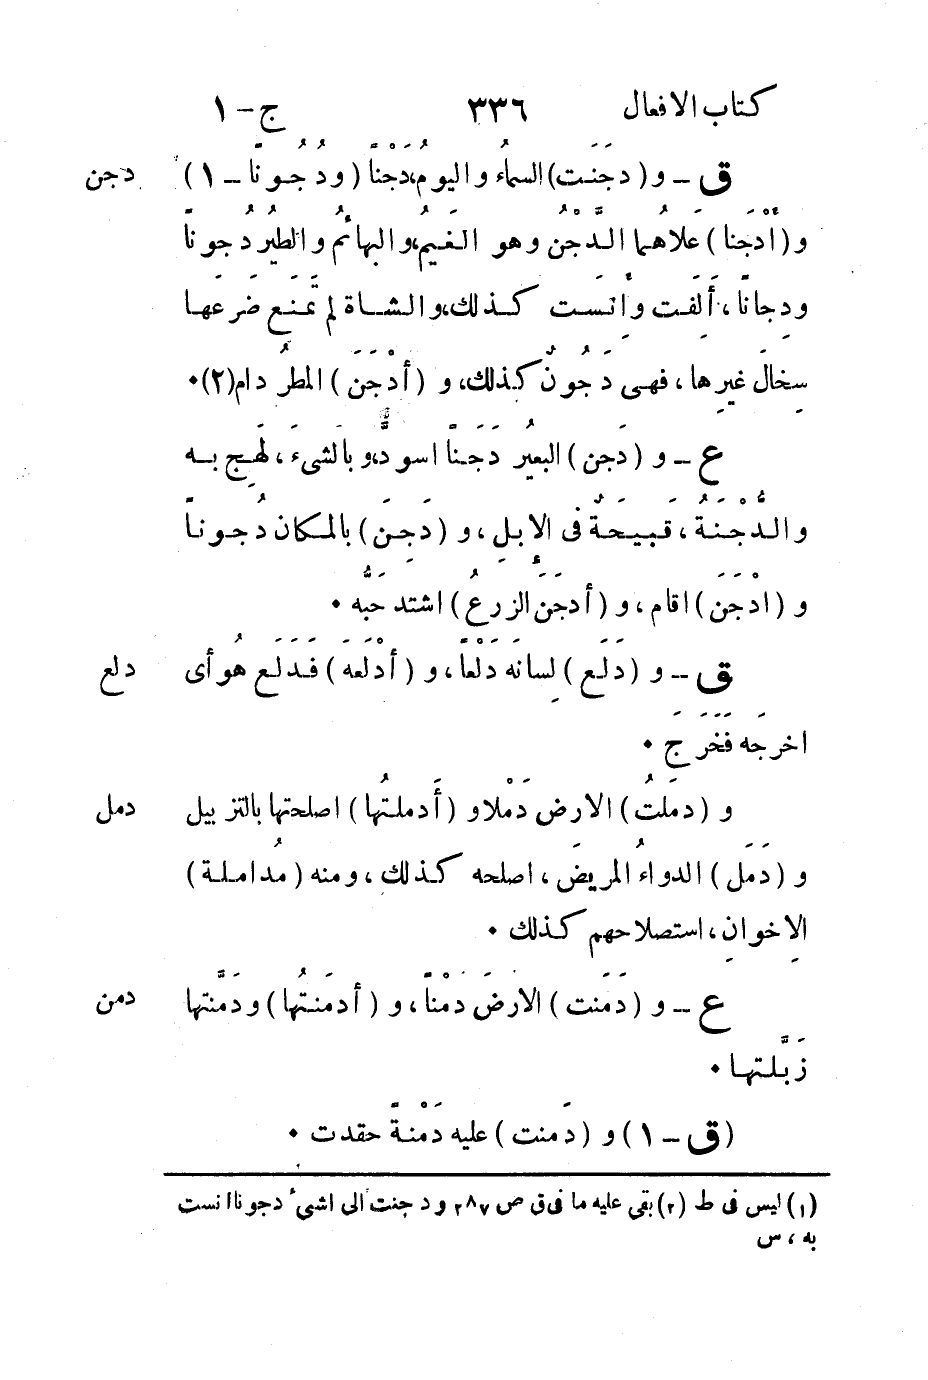 كتاب الافعال ٣٣٦ ج - ١
ق - و (دَجَنَت) السماءُ واليومُ، دَجْنًا (ودُجُونًا - ١) دجن
و (أَدْجَنا) عَلاهُما الدَّجْنُ وهو الغيمُ، والبهائمُ والطيرُ دجونا
ودِجانًا، أَلِفَت وأَنِسَت كذلك، والشاة لم تَمْنَع ضَرعَها
سِخالَ غيرِها، فهى دَجُونٌ كذلك، و (أَدْجَنَ) المطرُ دام (٢) ٠
ع - و (دَجن) البعيرُ دَجَنًا اسودّ، وبالشىءِ، لَهِج به
والدُّجْنَةُ، قَبِيحَةٌ فى الإِبلِ، و (دَجِنَ) بالمكان دُجونًا
و (ادْجَنَ) اقام، و (أَدجَنَ الزرعُ) اشتد حَبُّه ٠
ق - و (دَلَع) لِسانَه دَلْعًا، و (أَدْلَعَه) فَدَلَع هُو أى دلع
اخرجَه فَخَرَجَ ٠
و (دمَلتُ) الارض دَمْلا و (أَدملتُها) اصلحتها بالتزبيل دمل
و (دَمَل) الدواءُ المريضَ، اصلحه كذلك، ومنه (مُداملة)
الاِخوانِ، استصلاحهم كذلك ٠
ع - و (دَمَنت) الارضَ دمْنًا، و (أدمَنتُها) ودمَّنتها دمن
زَبَّلتها ٠
(ق - ١) و (دَمنت) عليه دَمْنةً حقدت ٠
(١) ليس فى ط (٢) بقى عليه ما فى ق ص ٢٨٧ ودجنت الى اشىء دجونا انست
به، س